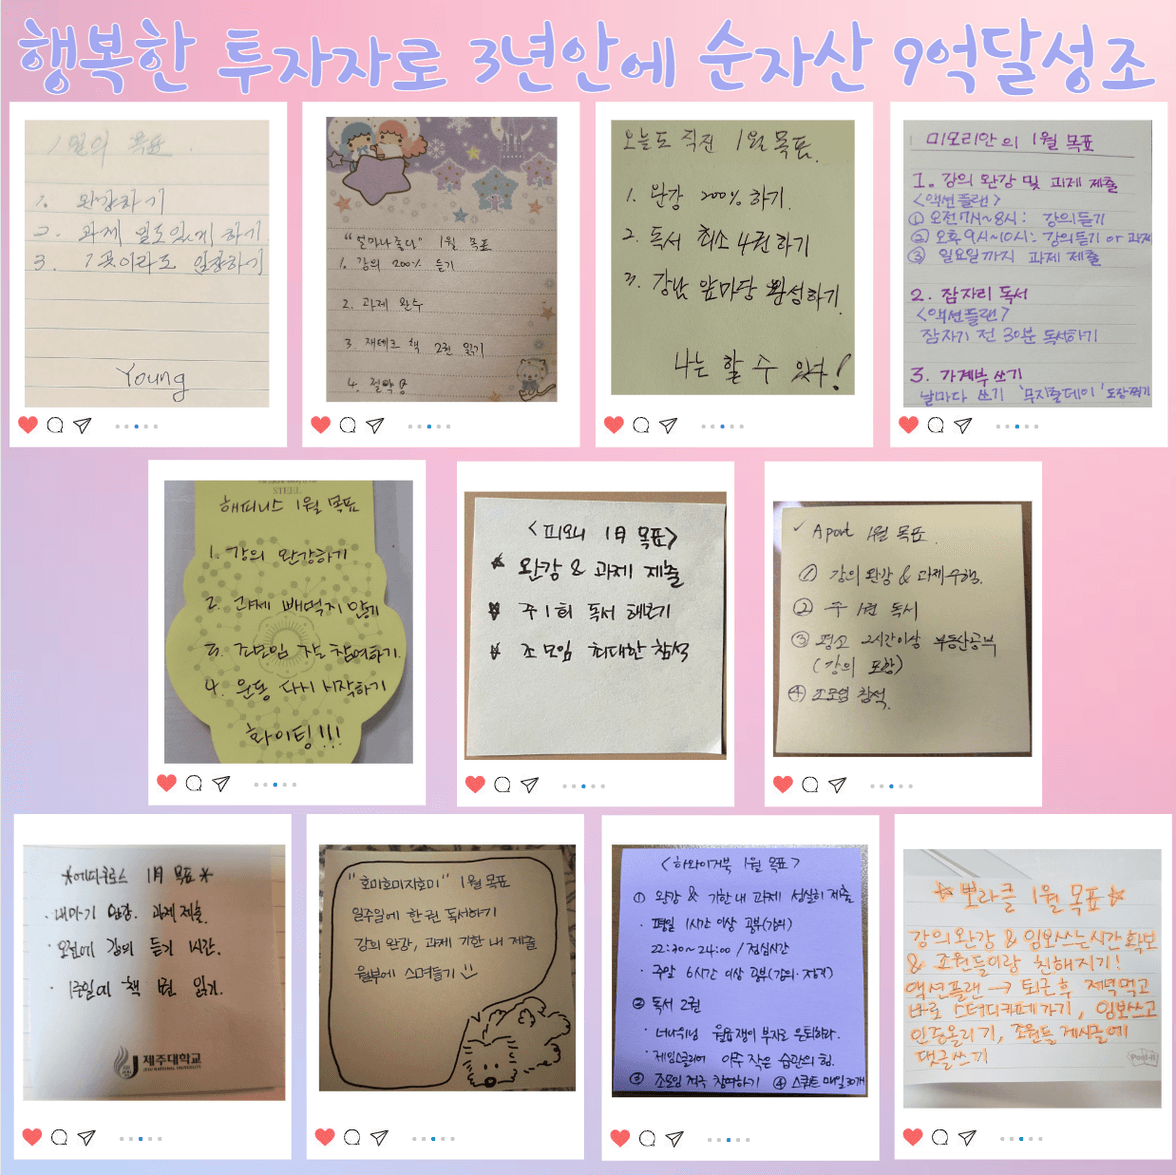 행복한 투자자로 3년안에 순자산 9억달성조
1월의 목표
1. 완강하기
2. 과제 밀도있게 하기
3. 1곳이라도 임장하기
Young
"얼마나좋다" 1월 목표
1. 강의 200% 듣기
2. 과제 완수
3 재테크 책 2권 읽기
4. 절약
오늘도 직진 1월 목표.
1. 완강 200% 하기.
2. 독서 최소 4권하기
3. 강남 앞마당 완성하기.
나는 할 수 있다!
미모리안의 1월 목표
1. 강의 완강 및 과제 제출
<액션플랜>
① 오전7시~8시: 강의듣기
② 오후9시~10시: 강의듣기 or 과제
③ 일요일까지 과제 제출
2. 잠자리 독서
<액션플랜>
잠자기 전 30분 독서하기
3. 가계부 쓰기
날마다 쓰기 '무지출데이' 도장찍기
STEEL
해피니스 1월 목표
1. 강의 완강하기
2. 과제 빼먹지 않기
3. 조모임 잘 참여하기.
4. 운동 다시 시작하기
화이팅!!!
<피오니 1月 목표>
완강 & 과제 제출
주 1회 독서 해보기
조 모임 최대한 참석
✓ Aport 1월 목표.
① 강의완강 & 과제수행.
② 주 1권 독서
③ 평소 2시간이상 부동산공부
(강의 포함)
④ 조모임 참석.
1月 목표
· 내마기 완강. 과제 제출.
· 오전에 강의 듣기 1시간.
· 1주일에 책 1권 읽기.
제주대학교
JEJU NATIONAL UNIVERSITY
"호미호미자호미" 1월 목표
일주일에 한 권 독서하기
강의 완강, 과제 기한 내 제출
월부에 스며들기
<하와이거북 1월 목표>
① 완강 & 기한내 과제 성실히 제출
· 평일 1시간 이상 공부(강의)
22:30~24:00 / 점심시간
· 주말 6시간 이상 공부(강의·과제)
② 독서 2권
· 너나위님 월급쟁이 부자로 은퇴하라.
· 제임스클리어 아주 작은 습관의 힘.
③ 조모임 적극 참여하기 ④ 스쿼트 매일 30개
☆ 뽀라클 1월 목표 ☆
강의완강 & 임보쓰는시간 확보
& 조원들이랑 친해지기!
액션플랜 → 퇴근후 저녁먹고
바로 스터디카페가기, 임보쓰고
인증올리기, 조원들 게시글에
댓글쓰기
Post-it